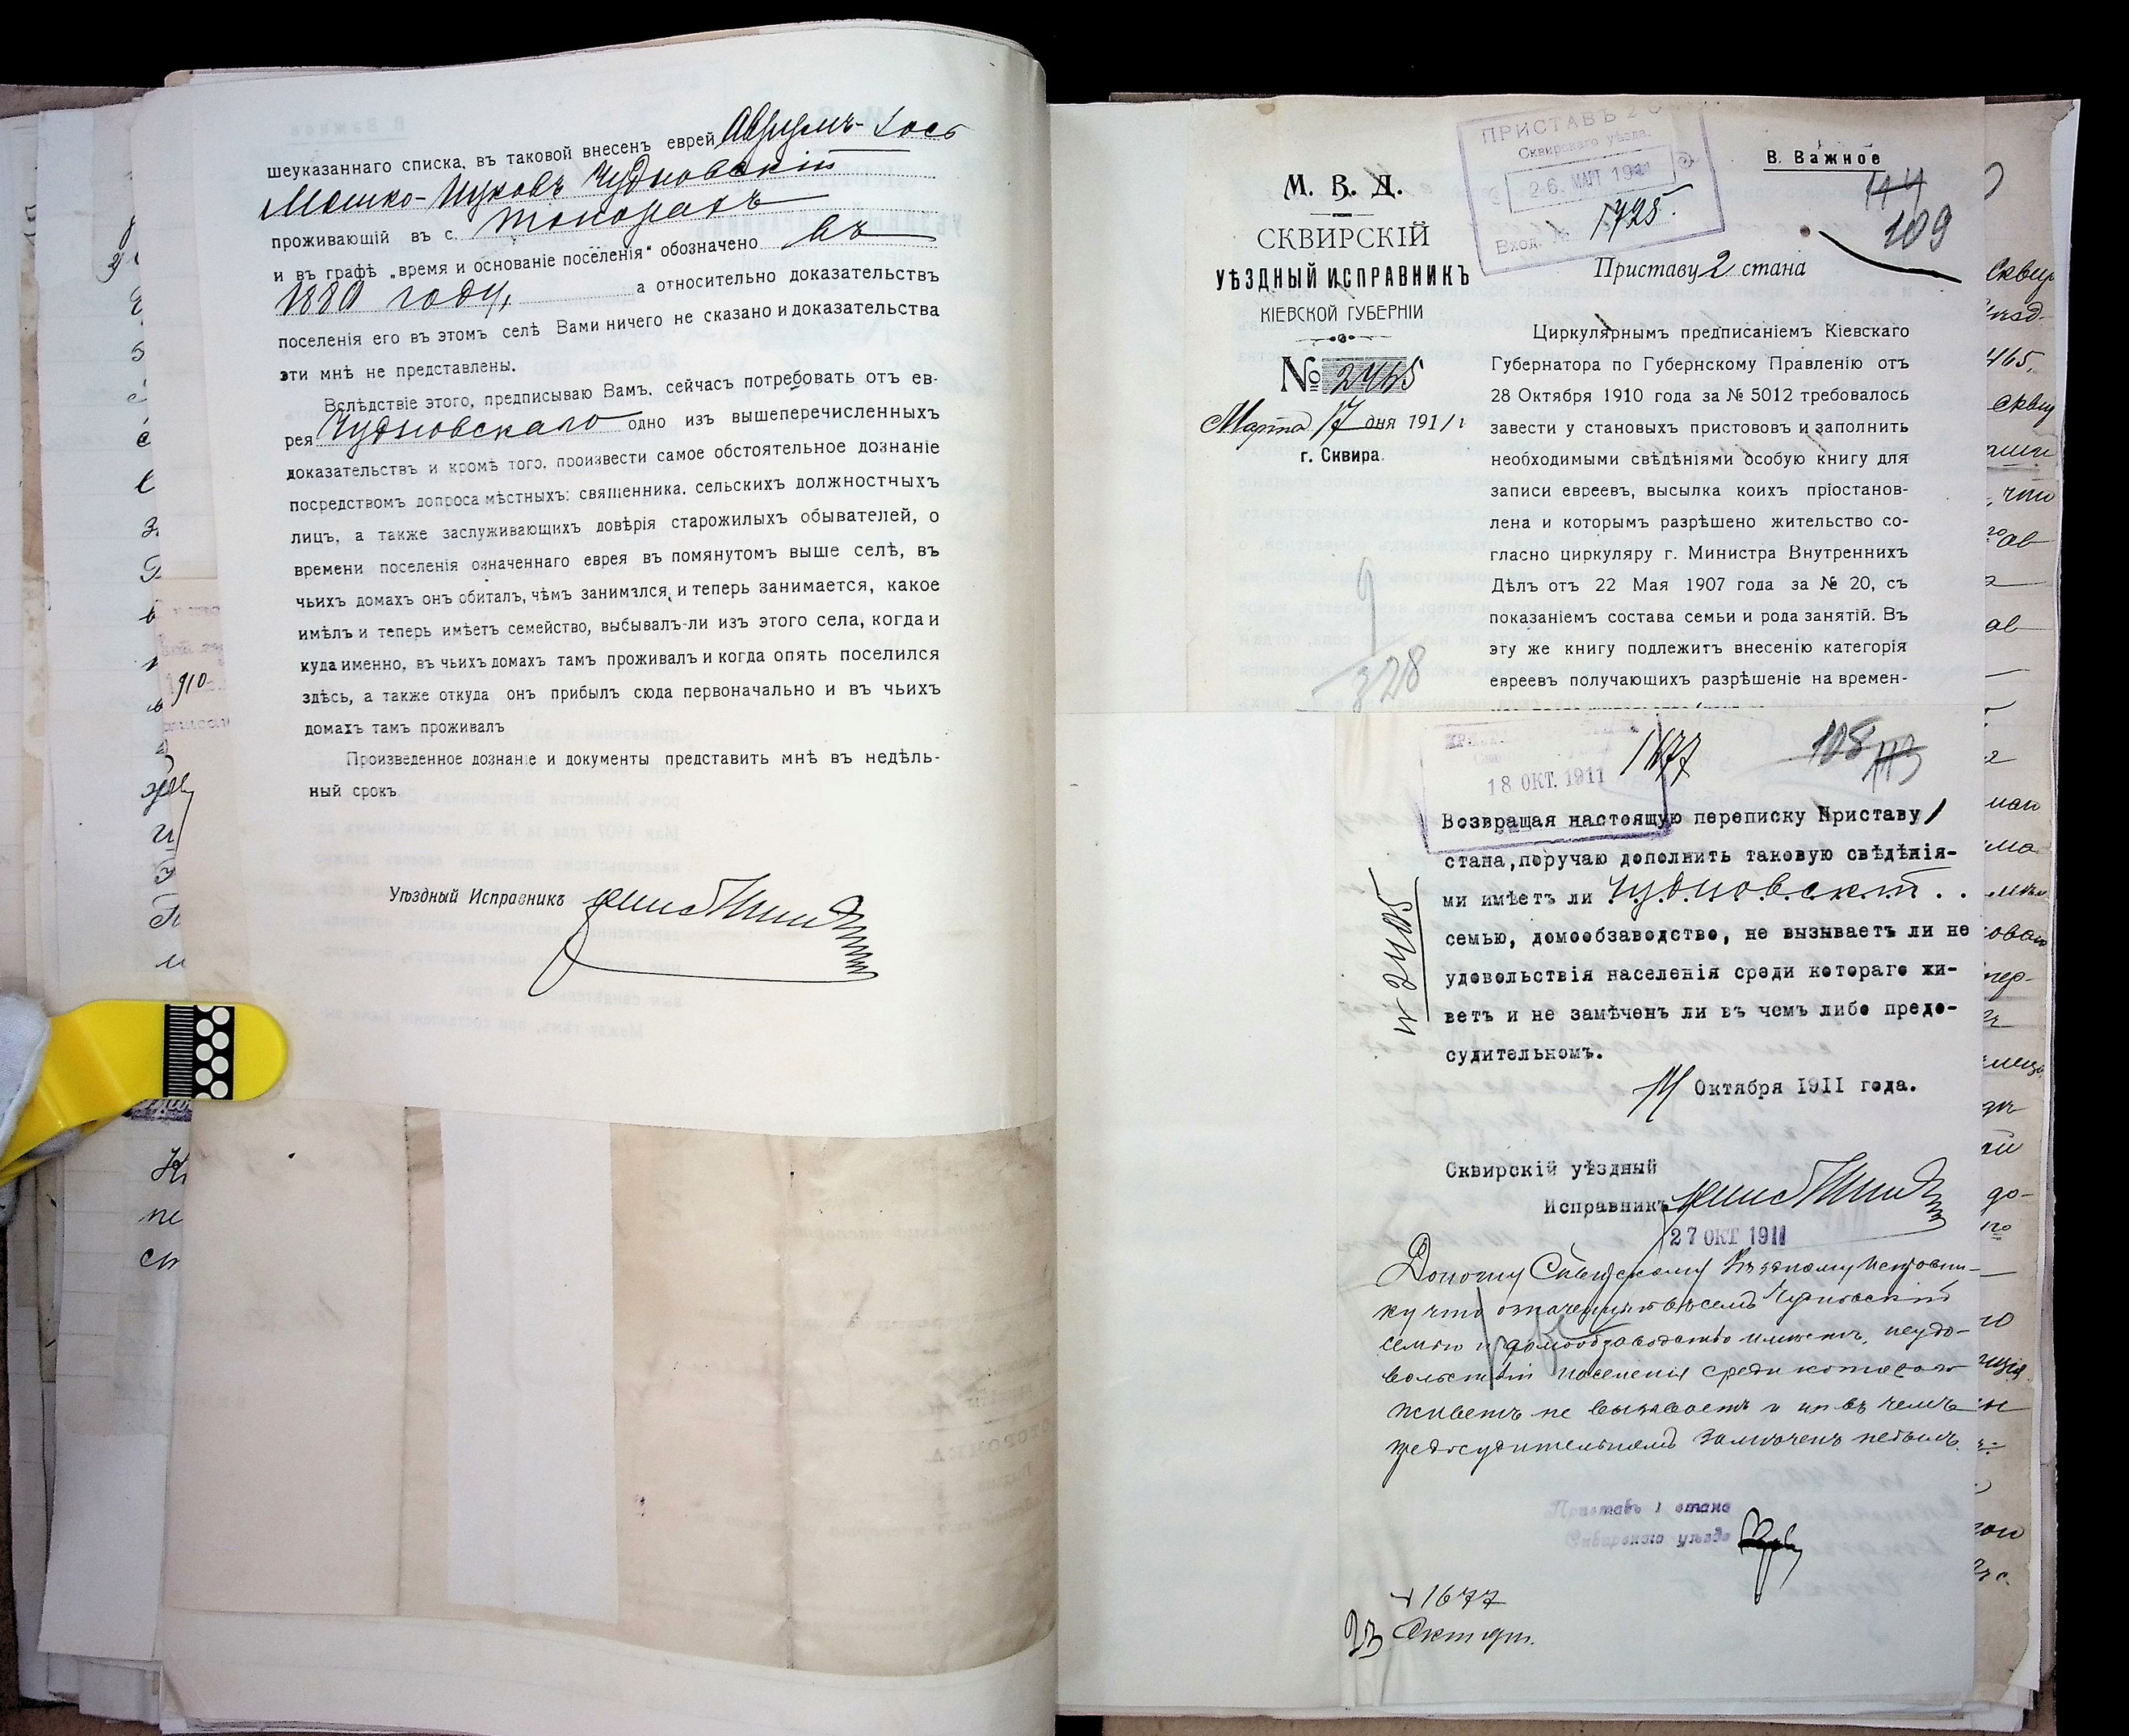 шеуказаннаго списка, въ таковой внесенъ еврей Аврумъ-Іось
Мошко-Ицковъ Чудновскій
проживающій въ с. Топорахъ
и въ графѣ „время и основаніе поселенія" обозначено въ
1880 году, а относительно доказательствъ
поселенія его въ этомъ селѣ Вами ничего не сказано и доказательства
эти мнѣ не представлены.
Вслѣдствіе этого, предписываю Вамъ, сейчасъ потребовать отъ ев-
рея Чудновскаго одно изъ вышеперечисленныхъ
доказательствъ и кромѣ того, произвести самое обстоятельное дознаніе
посредствомъ допроса мѣстныхъ: священника, сельскихъ должностныхъ
лицъ, а также заслуживающихъ довѣрія старожилыхъ обывателей, о
времени поселенія означеннаго еврея въ помянутомъ выше селѣ, въ
чьихъ домахъ онъ обиталъ, чѣмъ занимался и теперь занимается, какое
имѣлъ и теперь имѣетъ семейство, выбывалъ-ли изъ этого села, когда и
куда именно, въ чьихъ домахъ тамъ проживалъ и когда опять поселился
здѣсь, а также откуда онъ прибылъ сюда первоначально и въ чьихъ
домахъ тамъ проживалъ
Произведенное дознание и документы представить мнѣ въ недѣль-
ный срокъ
Уѣздный Исправникъ
ПРИСТАВЪ 2 С
Сквирскаго уѣзда.
26 МАРТ 1911
Вход. № 1725.
В. Важное
114
109
М. В. Д.
СКВИРСКІЙ
УѢЗДНЫЙ ИСПРАВНИКЪ
КІЕВСКОЙ ГУБЕРНІИ
№ 2465
Марта 17 дня 1911 г
г. Сквира.
Приставу 2 стана
Циркулярнымъ предписаніемъ Кіевскаго
Губернатора по Губернскому Правленію отъ
28 Октября 1910 года за № 5012 требовалось
завести у становыхъ пристововъ и заполнить
необходимыми свѣдѣніями особую книгу для
записи евреевъ, высылка коихъ пріостанов-
лена и которымъ разрѣшено жительство со-
гласно циркуляру г. Министра Внутреннихъ
Дѣлъ отъ 22 Мая 1907 года за № 20, съ
показаніемъ состава семьи и рода занятій. Въ
эту же книгу подлежитъ внесенію категорія
евреевъ получающихъ разрѣшеніе на времен-
9
328
18 ОКТ. 1911
1677
108
113
Возвращая настоящую переписку Приставу 1
стана, поручаю дополнить таковую свѣдѣнія-
ми имѣетъ ли Чудновскій . .
семью, домообзаводство, не вызываетъ ли не
удовольствія населенія среди котораго жи-
ветъ и не замѣченъ ли въ чемъ либо предо-
судительномъ.
14 Октября 1911 года.
№ 2405
Сквирскій уѣздный
Исправникъ
27 ОКТ 1911
Доношу Сквирскому Уѣздному Исправни-
ку что означенный въ семъ Чудновскій
семью и домообзаводство имѣетъ, неудо-
вольствій населенія среди котораго
живетъ не вызываетъ и ни въ чемъ
предосудительномъ замѣченъ небылъ.
Приставъ 1 стана
Сквирскаго уѣзда
№ 1677
23 Октября.